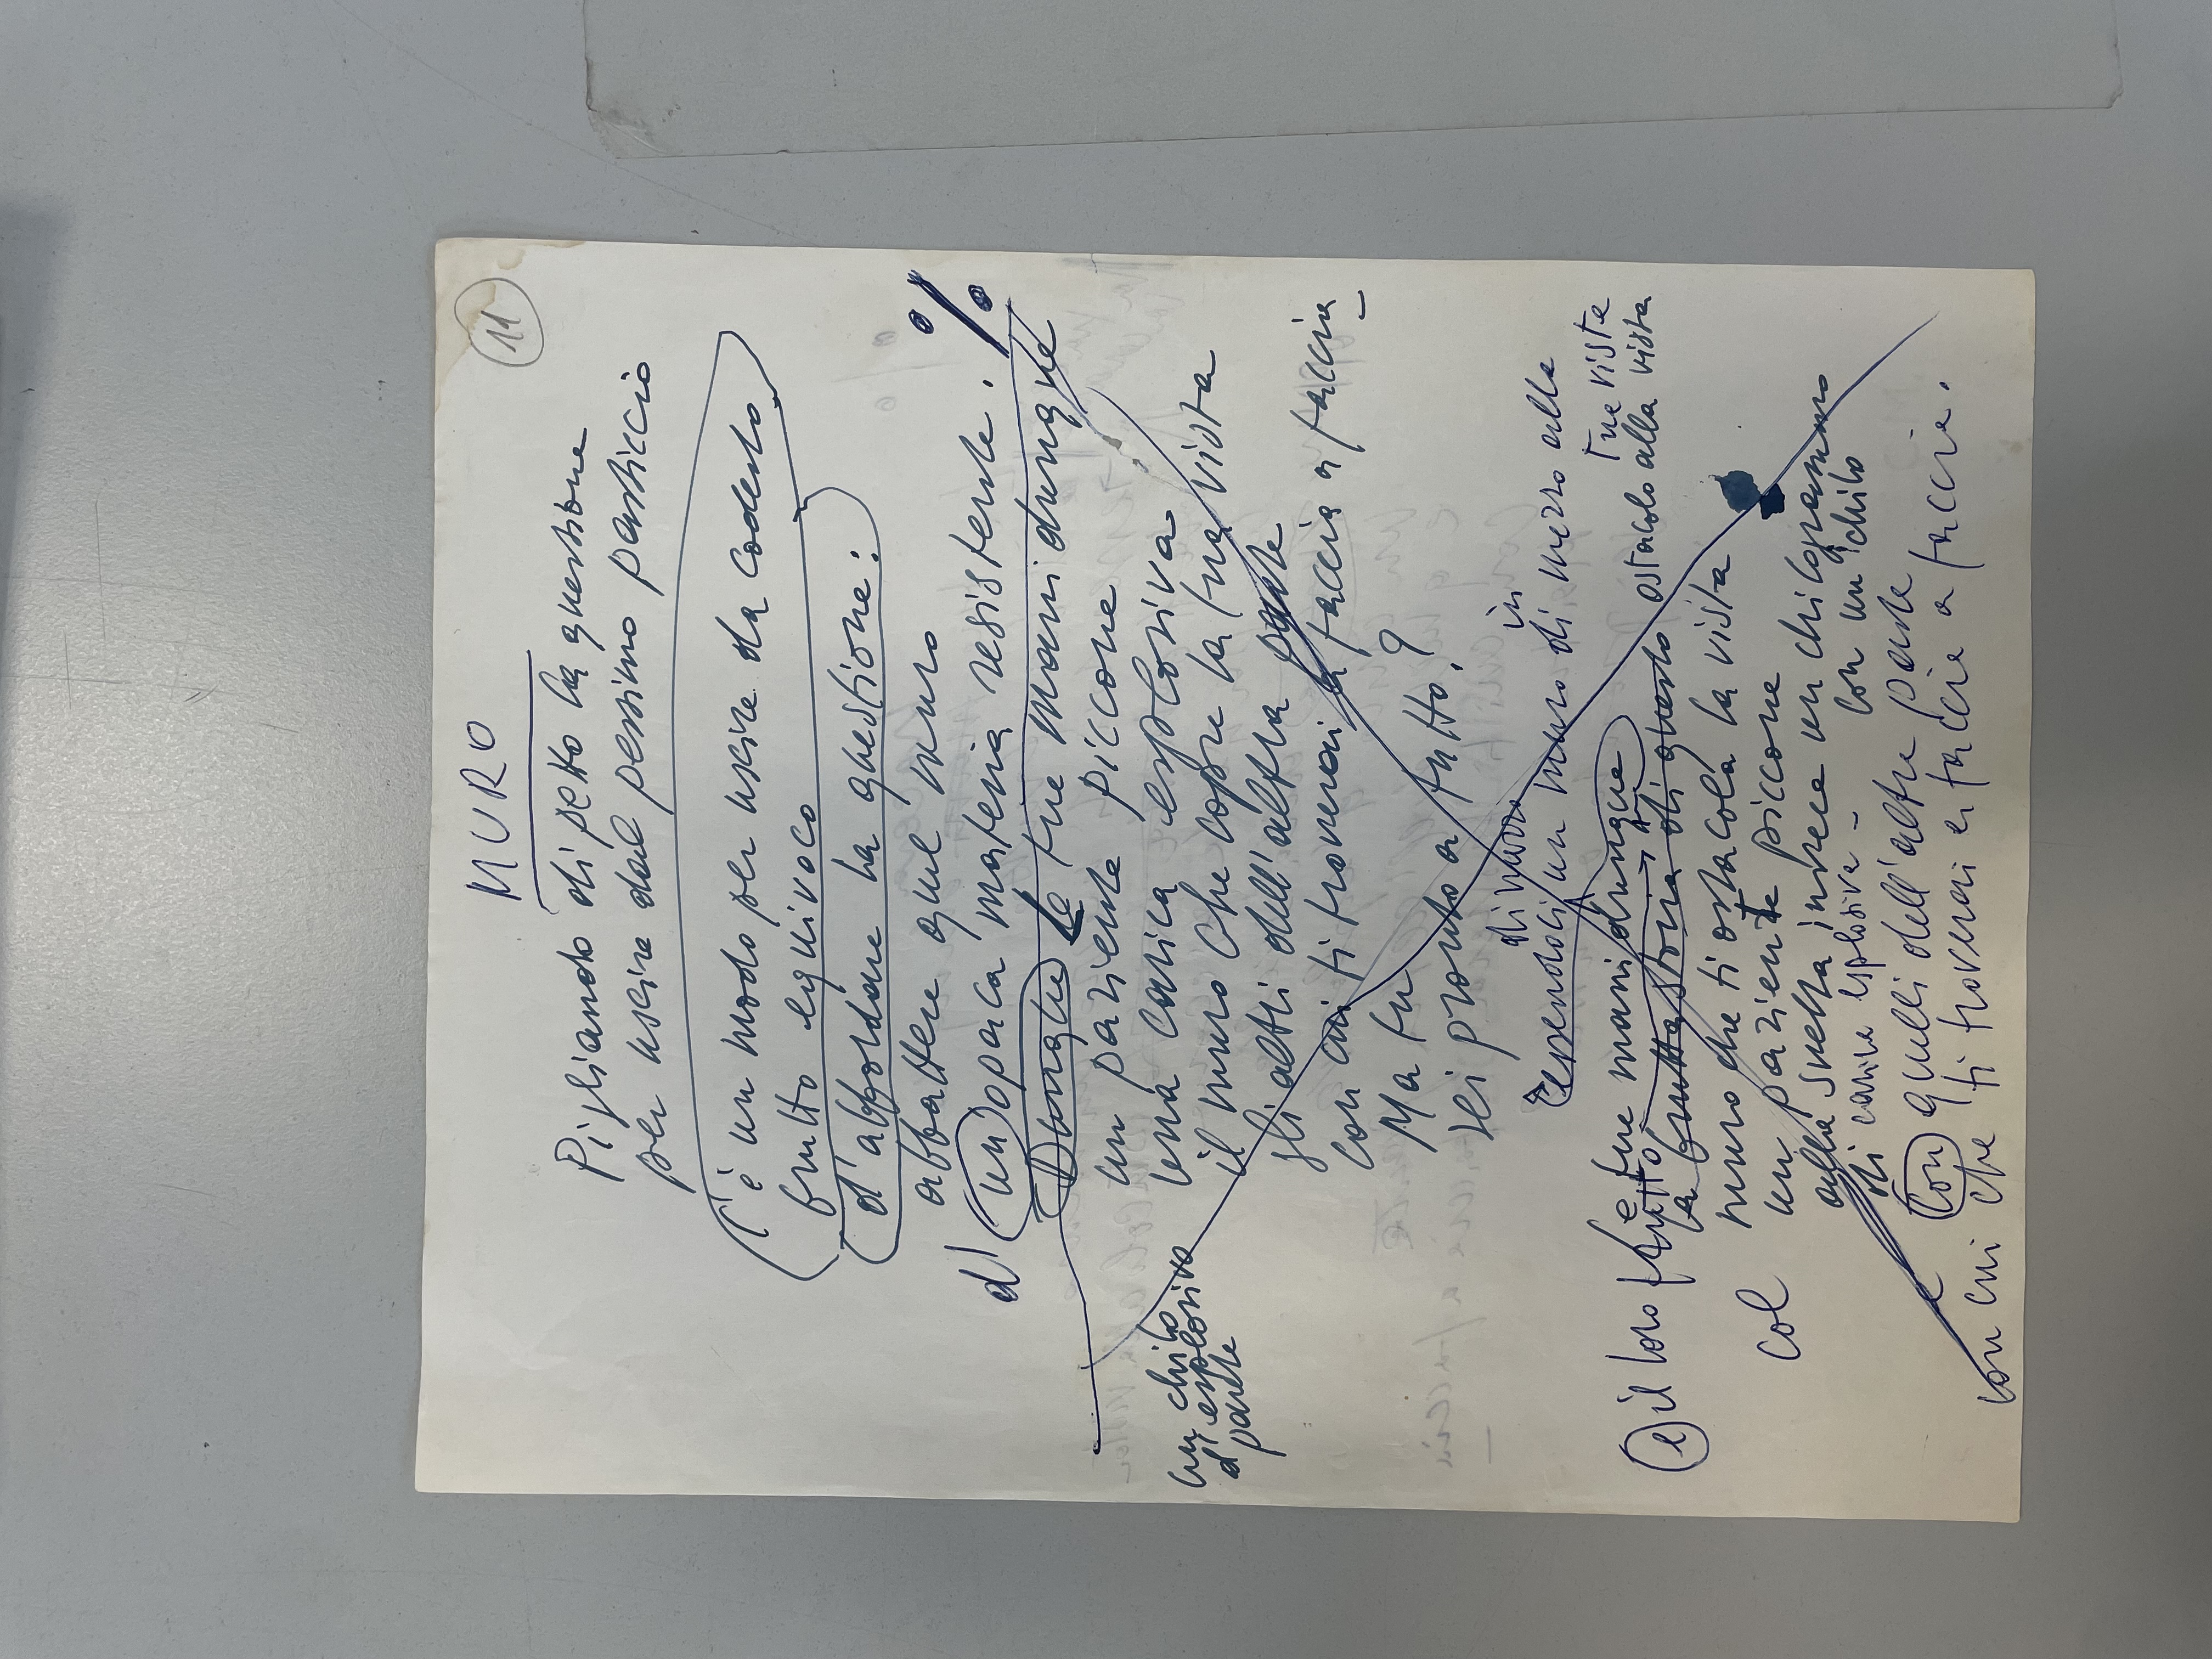 11
MURO
Pigliando di petto la questione
per uscire dal pessimo pasticcio
C'è un modo per uscire da codesto
brutto equivoco
d'abbordare la questione:
abbattere quel muro
d'un opaca materia resistente. %
Dunque le tue mani dunque
un paziente piccone
una carica esplosiva
un chilo
d'esplosiva
il muro che copre la tua vista
parete
gli altri dell'altra parte
con cui ti troverai a faccia a faccia
Ma tu
sei pronto a tutto?
di nuovo in
Essendoci un muro di mezzo alle
tue viste
e il loro frutto e tue mani dunque ostacolo alla vista
la brutta storia di questo
muro che ti ostacola la vista
col un paziente piccone
alla svelta invece un chilogrammo
di carica esplosiva - con un chilo
e con quelli dell'altra parte
con cui che ti troverai a faccia a faccia.